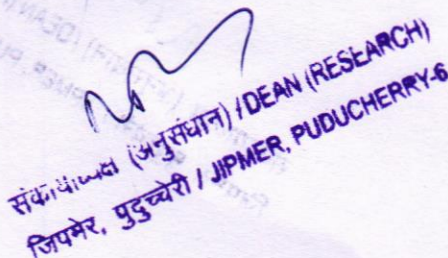 (अनुसंधान) / DEAN (RESEARCH)
जिपमेर, पुदुच्चेरी / JIPMER, PUDUCHERRY-6